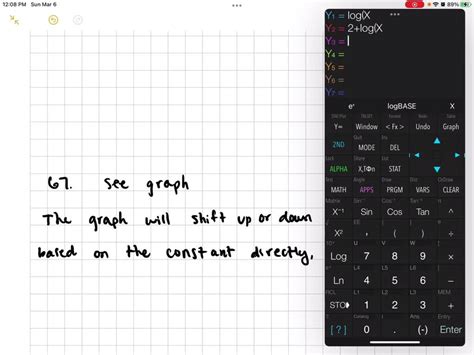 12:08 PM Sun Mar 6
89%
67. see graph
The graph will shift up or down
based on the constant directly.
Y1 = log(X
Y2 = 2+log(X
Y3 =
Y4 =
Y5 =
Y6 =
Y7 =
eˣ logBASE X
Y= Window < Fx > Undo Graph
2ND MODE DEL
ALPHA X,T,Θ,n STAT
MATH APPS PRGM VARS CLEAR
X⁻¹ Sin Cos Tan ^
X² , ( ) ÷
Log 7 8 9 ×
Ln 4 5 6 −
STO 1 2 3 +
[?] 0 . (-) Enter